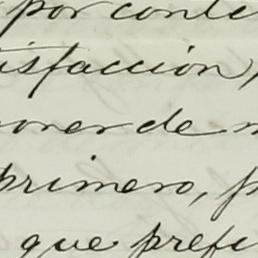 por conte
isfacción,
oner de m
primero, p
que prefi